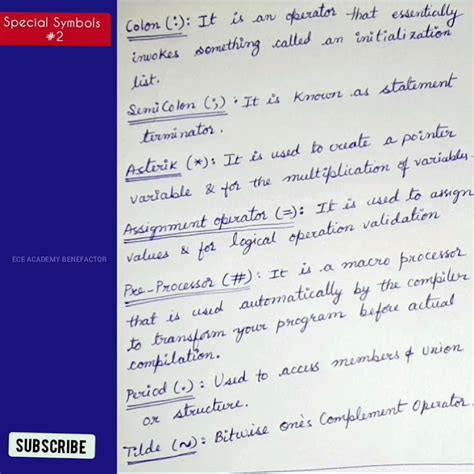 Special Symbols
#2
ECE ACADEMY BENEFACTOR
SUBSCRIBE
Colon (:): It is an operator that essentially
invokes something called an initialization
list.
SemiColon (;): It is known as statement
terminator.
Asterik (*): It is used to create a pointer
variable & for the multiplication of variables.
Assignment operator (=): It is used to assign
values & for logical operation validation
Pre-Processor (#): It is a macro processor
that is used automatically by the compiler
to transform your program before actual
compilation.
Period (.): Used to access members of union
or structure.
Tilde (~): Bitwise one's Complement Operator.